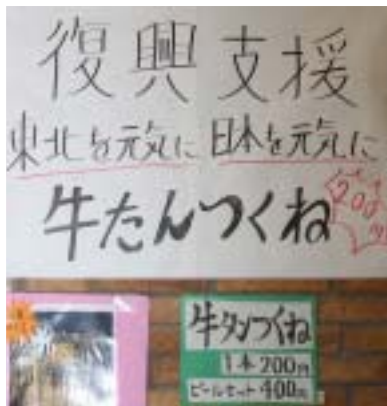 復興支援
東北を元気に 日本を元気に
牛たんつくね
200
牛タンつくね
1本200円
ビールセット400円